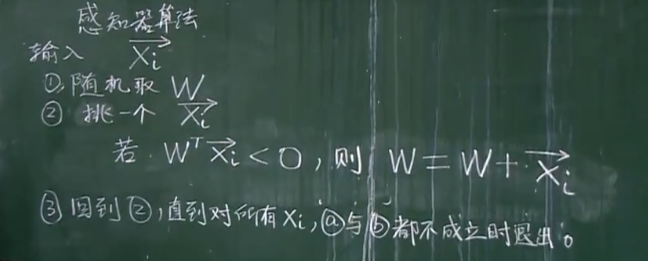 感知器算法
输入 $\overrightarrow{X_i}$
①、随机取 W
② 挑一个 $\overrightarrow{X_i}$
若 $W^T\overrightarrow{X_i}<0$，则 $W=W+\overrightarrow{X_i}$
③ 回到②，直到对所有 $X_i$，ⓐ与ⓑ都不成立时退出。